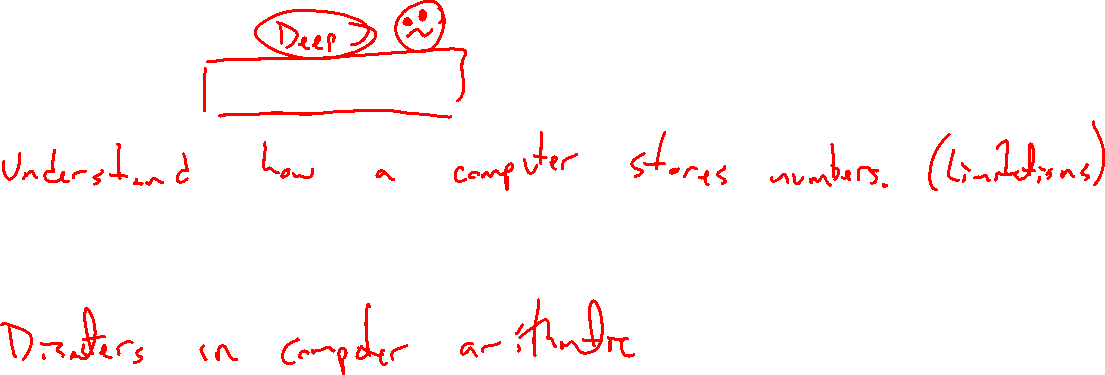 Deep
Understand how a computer stores numbers. (Limitations)
Disasters in computer arithmetic